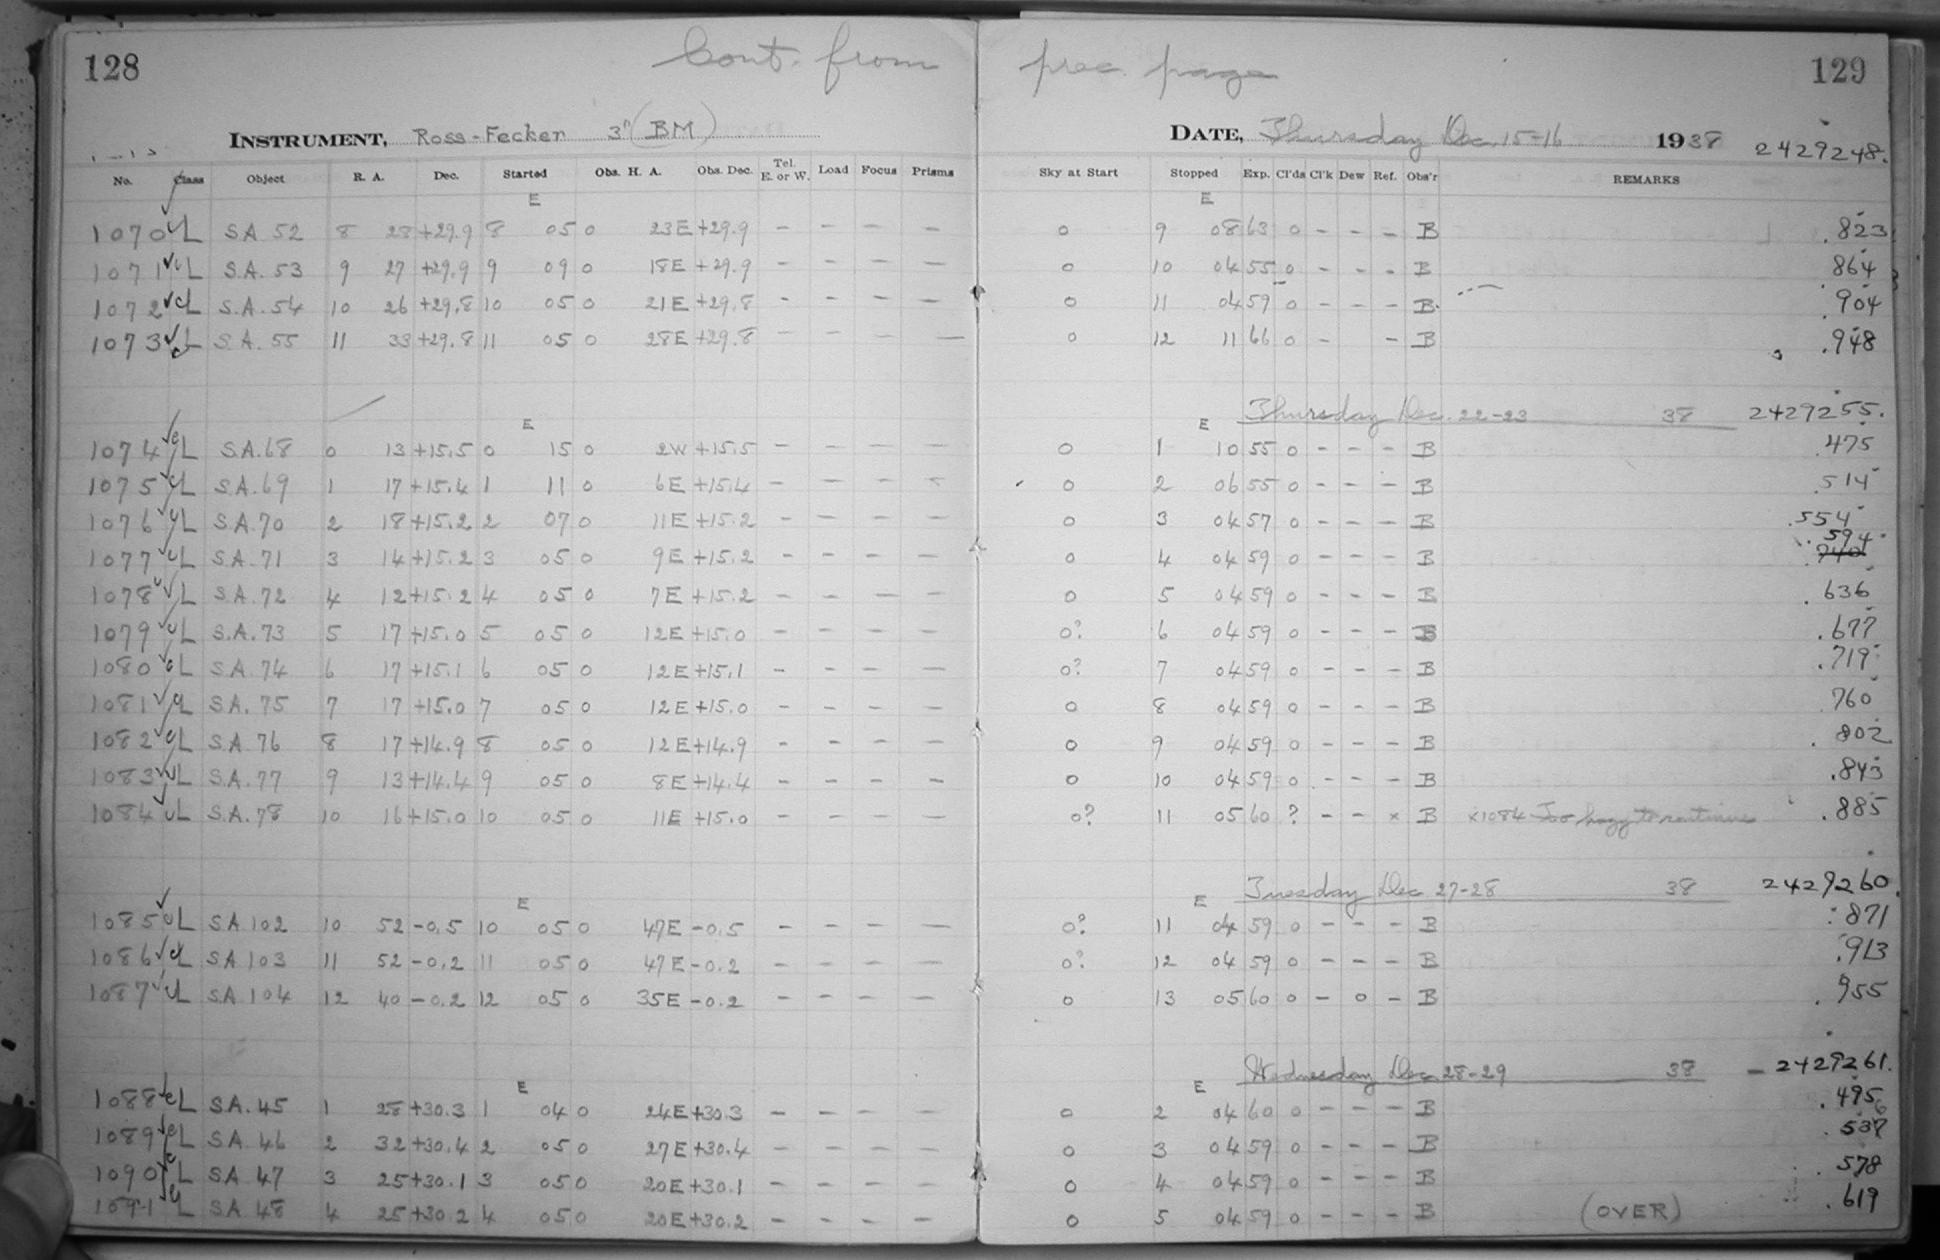 128 Cont. from prec. page 129
INSTRUMENT, Ross-Fecker 3" (BM) DATE, Thursday Dec. 15-16 1938 2429248.
No. Class Object R. A. Dec. Started Obs. H. A. Obs. Dec. Tel. E. or W. Load Focus Prisms Sky at Start Stopped Exp. Cl'ds Cl'k Dew Ref. Obs'r REMARKS
E E
1070 L SA 52 8 28 +29.9 8 05 0 23E +29.9 - - - - 0 9 08 63 0 - - - B .823
1071 L S.A. 53 9 27 +29.9 9 09 0 18E +29.9 - - - - 0 10 04 55 0 - - - B 864
1072 L S.A. 54 10 26 +29.8 10 05 0 21E +29.8 - - - - 0 11 04 59 0 - - - B .904
1073 L S.A. 55 11 33 +29.8 11 05 0 28E +29.8 - - - - 0 12 11 66 0 - - B .948
Thursday Dec. 22-23 38 2429255.
E E
1074 L S.A.68 0 13 +15.5 0 15 0 2W +15.5 - - - - 0 1 10 55 0 - - - B .475
1075 L S.A.69 1 17 +15.4 1 11 0 6E +15.4 - - - - 0 2 06 55 0 - - - B .514
1076 L S.A.70 2 18 +15.2 2 07 0 11E +15.2 - - - - 0 3 04 57 0 - - - B .554
1077 L S.A. 71 3 14 +15.2 3 05 0 9E +15.2 - - - - 0 4 04 59 0 - - - B .594
1078 L S.A. 72 4 12 +15.2 4 05 0 7E +15.2 - - - - 0 5 04 59 0 - - - B .636
1079 L S.A. 73 5 17 +15.0 5 05 0 12E +15.0 - - - - 0? 6 04 59 0 - - - B .677
1080 L S.A. 74 6 17 +15.1 6 05 0 12E +15.1 - - - - 0? 7 04 59 0 - - - B .719
1081 L S.A. 75 7 17 +15.0 7 05 0 12E +15.0 - - - - 0 8 04 59 0 - - - B 760
1082 L S.A. 76 8 17 +14.9 8 05 0 12E +14.9 - - - - 0 9 04 59 0 - - - B .802
1083 L S.A. 77 9 13 +14.4 9 05 0 8E +14.4 - - - - 0 10 04 59 0 - - - B .843
1084 L S.A. 78 10 16 +15.0 10 05 0 11E +15.0 - - - - 0? 11 05 60 ? - - x B x1084 Too hazy to continue .885
Tuesday Dec 27-28 38 2429260.
E E
1085 L SA 102 10 52 -0.5 10 05 0 47E -0.5 - - - - 0? 11 04 59 0 - - - B .871
1086 L SA 103 11 52 -0.2 11 05 0 47E -0.2 - - - - 0? 12 04 59 0 - - - B .913
1087 L SA 104 12 40 -0.2 12 05 0 35E -0.2 - - - - 0 13 05 60 0 - 0 - B .955
Wednesday Dec. 28-29 38 - 2429261.
E E
1088 L S.A. 45 1 28 +30.3 1 04 0 24E +30.3 - - - - 0 2 04 60 0 - - - B .495
1089 L S.A. 46 2 32 +30.4 2 05 0 27E +30.4 - - - - 0 3 04 59 0 - - - B
1090 L SA 47 3 25 +30.1 3 05 0 20E +30.1 - - - - 0 4 04 59 0 - - - B .578
1091 L SA 48 4 25 +30.2 4 05 0 20E +30.2 - - - - 0 5 04 59 0 - - - B (OVER) .619